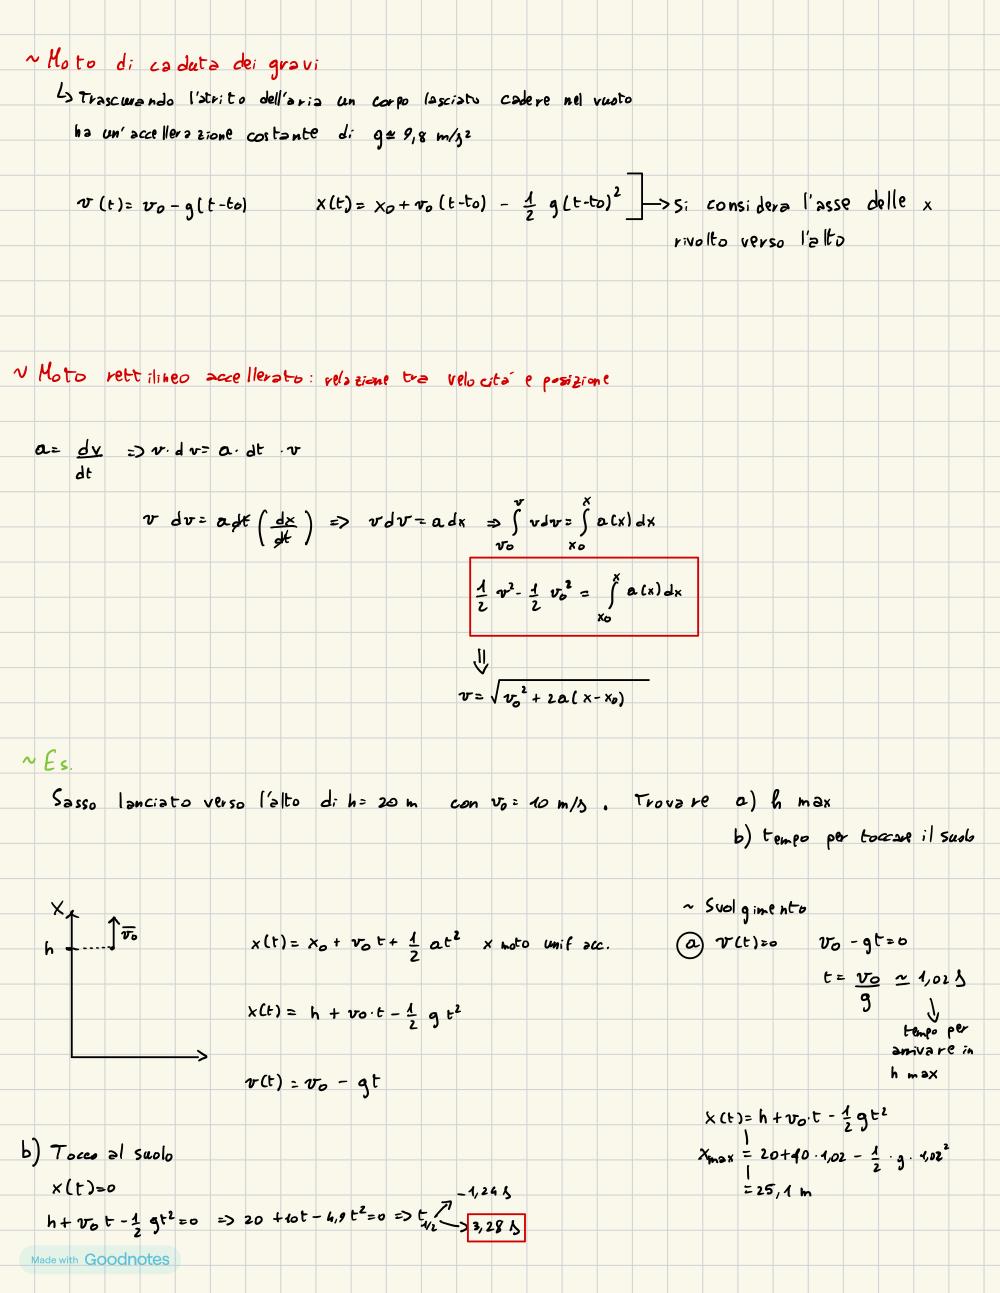 ~ Moto di caduta dei gravi
↳ Trascurando l'atrito dell'aria un corpo lasciato cadere nel vuoto
ha un'accellerazione costante di g≃ 9,8 m/s²
v(t)= v₀ - g(t-t₀) x(t)= x₀ + v₀ (t-t₀) - 1/2 g(t-t₀)² → Si considera l'asse delle x
rivolto verso l'alto
~ Moto rettilineo accellerato: relazione tra velocità e posizione
a= dv/dt => v·dv= a·dt ·v
v dv= a dt (dx/dt) => v dv = a dx => ∫_{v₀}^{v} v dv = ∫_{x₀}^{x} a(x) dx
1/2 v² - 1/2 v₀² = ∫_{x₀}^{x} a(x) dx
⇓
v= √(v₀² + 2a(x-x₀))
~ Es.
Sasso lanciato verso l'alto di h= 20 m con v₀= 10 m/s . Trovare a) h max
b) tempo per toccare il suolo
X
h
v̅₀
x(t)= x₀ + v₀ t + 1/2 at² x moto unif acc.
x(t)= h + v₀·t - 1/2 g t²
v(t) = v₀ - gt
~ Svolgimento
ⓐ v(t)=0 v₀ - gt=0
t= v₀/g ≃ 1,02 s
↓
tempo per
arrivare in
h max
x(t)= h + v₀·t - 1/2 gt²
x_max = 20+10·1,02 - 1/2 ·g· 1,02²
= 25,1 m
b) Tocco al suolo
x(t)=0
h+v₀t - 1/2 gt² =0 => 20 +10t - 4,9 t²=0 => t_{1/2} ↗ -1,24 s
→ 3,28 s
Made with Goodnotes